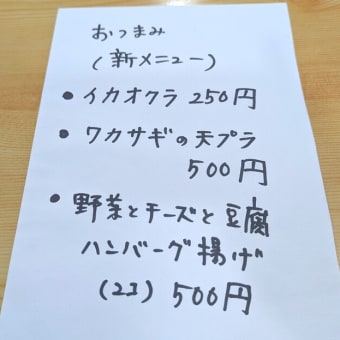 おつまみ
(新メニュー)
• イカオクラ 250円
• ワカサギの天プラ
500円
• 野菜とチーズと豆腐
ハンバーグ揚げ
(2コ) 500円